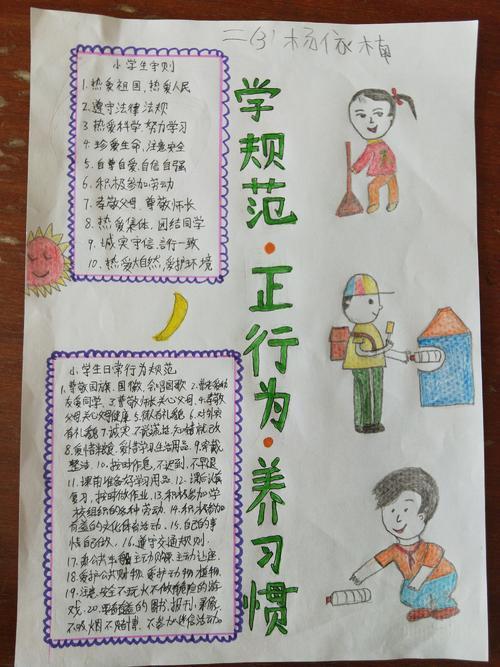 二(3)杨依楠
小学生守则
1.热爱祖国,热爱人民
2.遵守法律法规
3.热爱科学,努力学习
4.珍爱生命,注意安全
5.自尊自爱,自信自强
6.积极参加劳动
7.孝敬父母,尊敬师长
8.热爱集体,团结同学
9.诚实守信,言行一致
10.热爱大自然,爱护环境
学规范·正行为·养习惯
小学生日常行为规范
1.尊敬国旗、国徽,会唱国歌 2.
友爱同学 3.尊敬师长关心父母,4.孝敬
父母关心父母健康 5.微有礼貌 6.对别
有礼貌 7.诚实不说谎话知错就改
8.爱惜粮食、爱惜学习生活用品.9.穿戴
整洁.10.按时作息,不迟到,不早退
11.课前准备好学习用品.12.课后认真
复习,按时做作业,13.积极参加学
校组织的各种劳动.14.积极参加
有益的文化体育活动.15.自己的事
情自己做.16.遵守交通规则.
17.乘公共车主动购票主动让座.
18.爱护公共财物,爱护动物植物.
19.注意安全不玩火不做危险的游
戏.20.有益的图书,报刊,录像,
不吸烟不赌博,不参加迷信活动